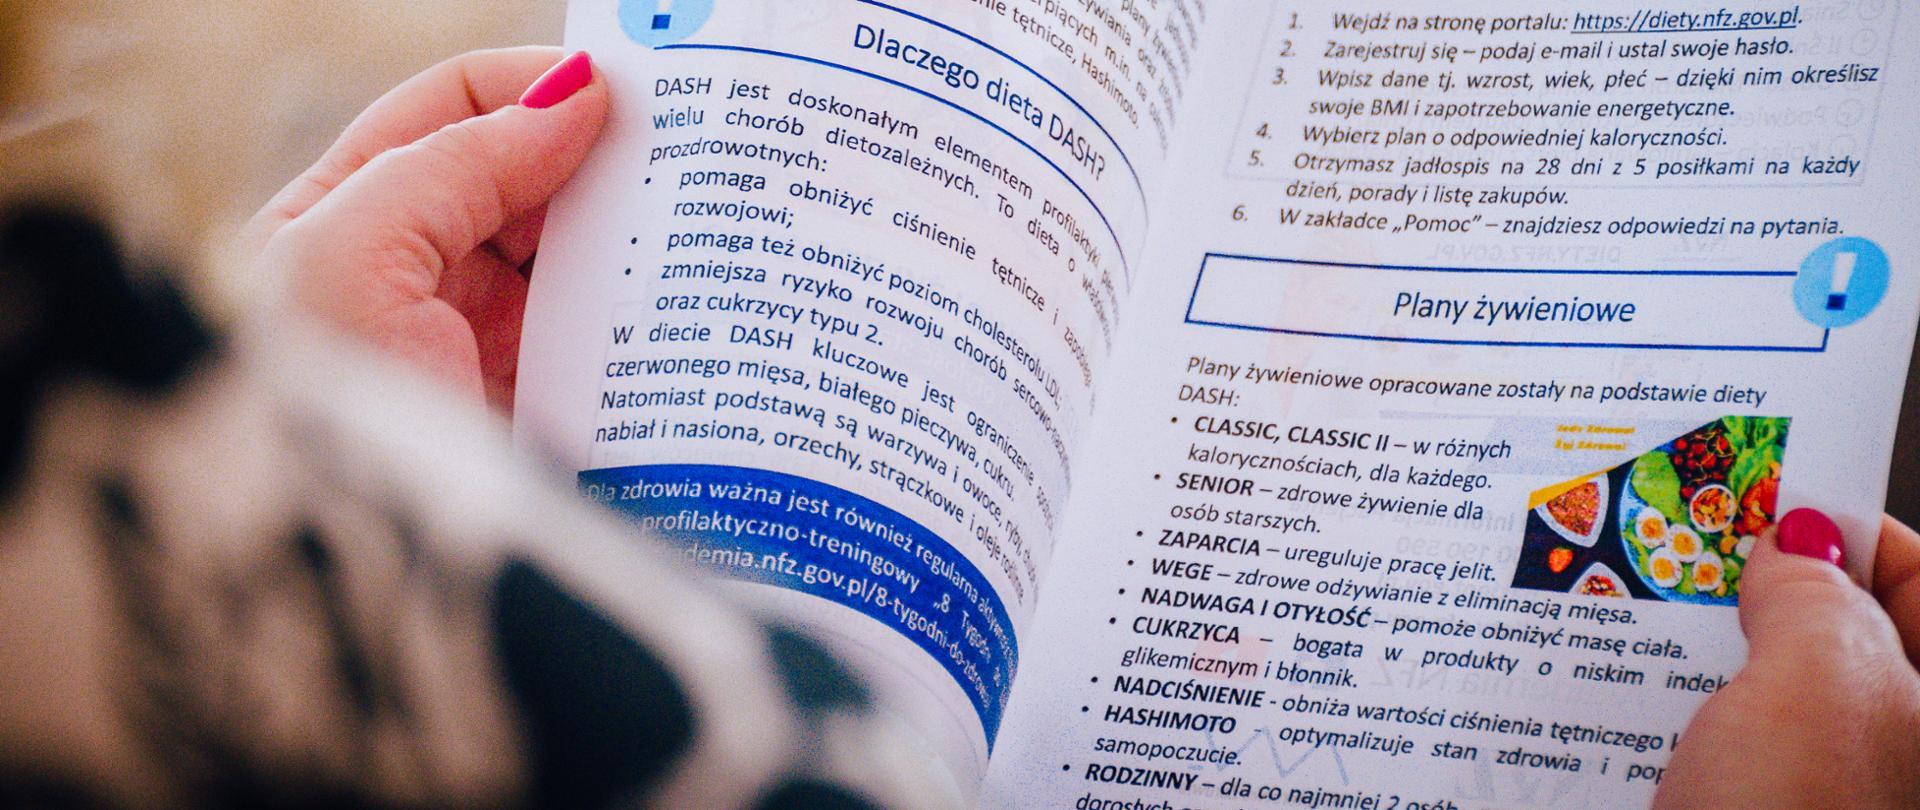 nie tętnicze, Hashimoto.
Dlaczego dieta DASH?
DASH jest doskonałym elementem profilaktyki
wielu chorób dietozależnych. To dieta o
prozdrowotnych:
• pomaga obniżyć ciśnienie tętnicze i
rozwojowi;
• pomaga też obniżyć poziom cholesterolu LDL;
• zmniejsza ryzyko rozwoju chorób
oraz cukrzycy typu 2.
W diecie DASH kluczowe jest ograniczenie
czerwonego mięsa, białego pieczywa, cukru.
Natomiast podstawą są warzywa i owoce, ryby,
nabiał i nasiona, orzechy, strączkowe i oleje
zdrowia ważna jest również regularna
profilaktyczno-treningowy „8 Tygodni
1. Wejdź na stronę portalu: https://diety.nfz.gov.pl.
2. Zarejestruj się – podaj e-mail i ustal swoje hasło.
3. Wpisz dane tj. wzrost, wiek, płeć – dzięki nim określisz
swoje BMI i zapotrzebowanie energetyczne.
4. Wybierz plan o odpowiedniej kaloryczności.
5. Otrzymasz jadłospis na 28 dni z 5 posiłkami na każdy
dzień, porady i listę zakupów.
6. W zakładce „Pomoc” – znajdziesz odpowiedzi na pytania.
!
Plany żywieniowe
Plany żywieniowe opracowane zostały na podstawie diety
DASH:
• CLASSIC, CLASSIC II – w różnych
kalorycznościach, dla każdego.
• SENIOR – zdrowe żywienie dla
osób starszych.
• ZAPARCIA – ureguluje pracę jelit.
• WEGE – zdrowe odżywianie z eliminacją mięsa.
• NADWAGA I OTYŁOŚĆ – pomoże obniżyć masę ciała.
• CUKRZYCA – bogata w produkty o niskim
glikemicznym i błonnik.
• NADCIŚNIENIE - obniża wartości ciśnienia tętniczego
• HASHIMOTO - optymalizuje stan zdrowia i
samopoczucie.
• RODZINNY – dla co najmniej 2 osób